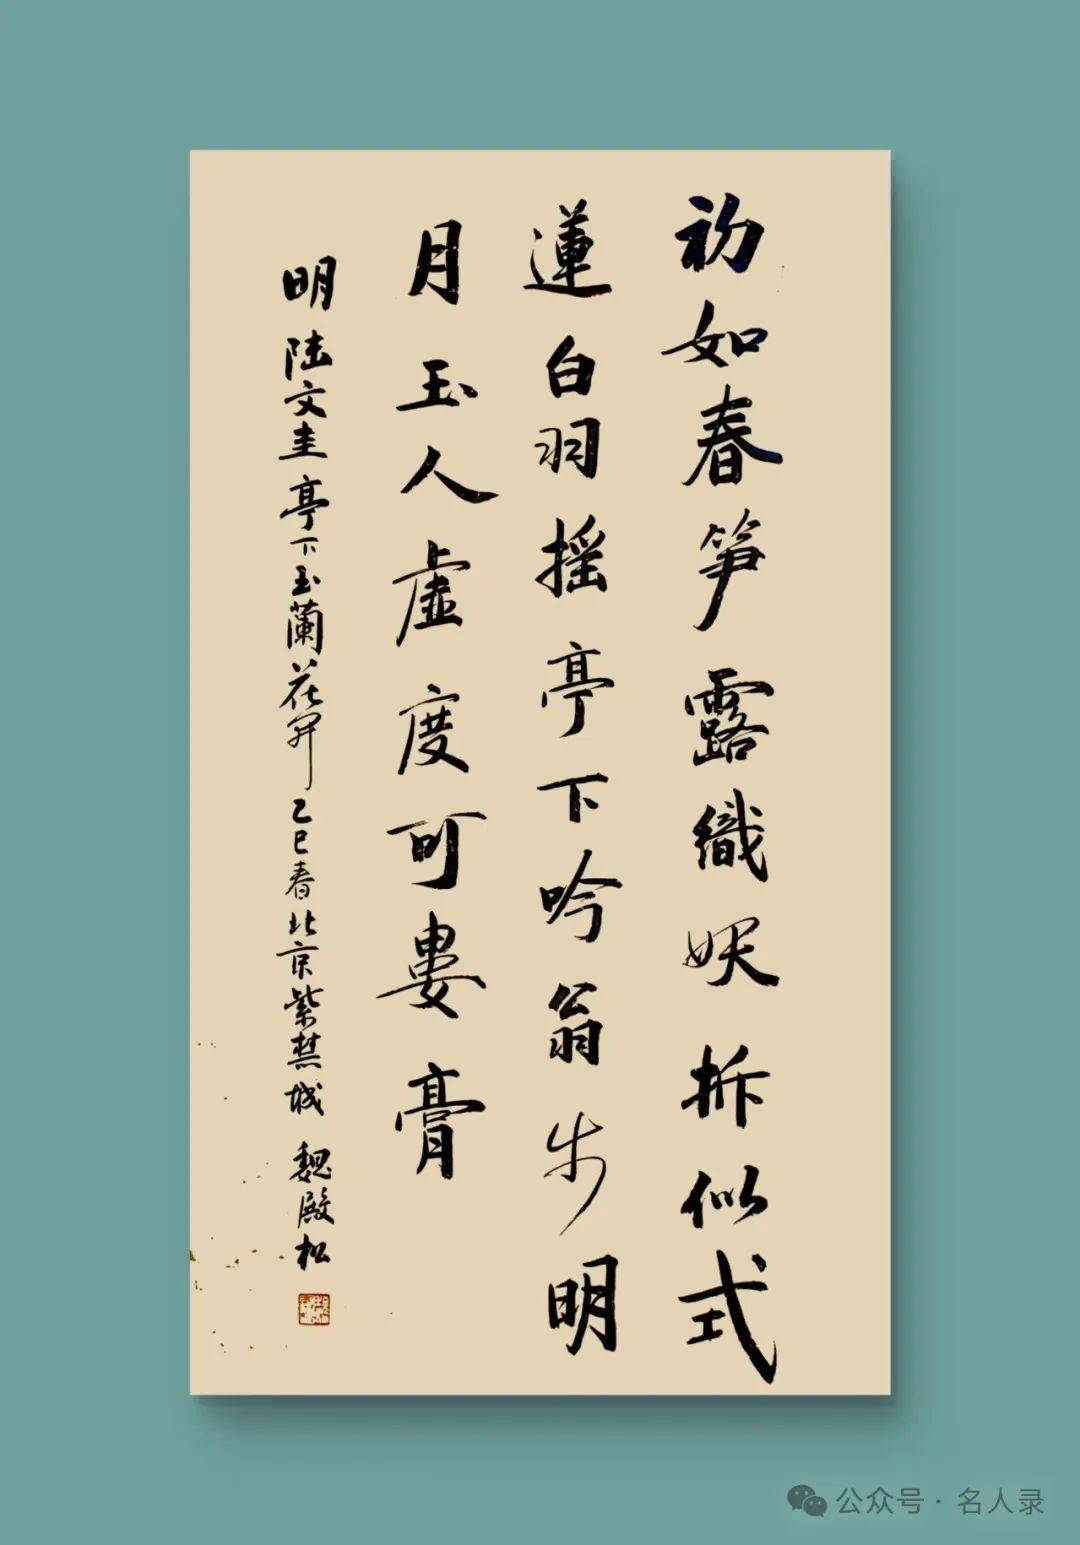 初如春笋露織妖拆似式
蓮白羽摇亭下吟翁步明
月玉人虚度可婁膏
明陆文圭亭下玉蘭花开乙巳春北京紫禁城 魏殿松
公众号 · 名人录